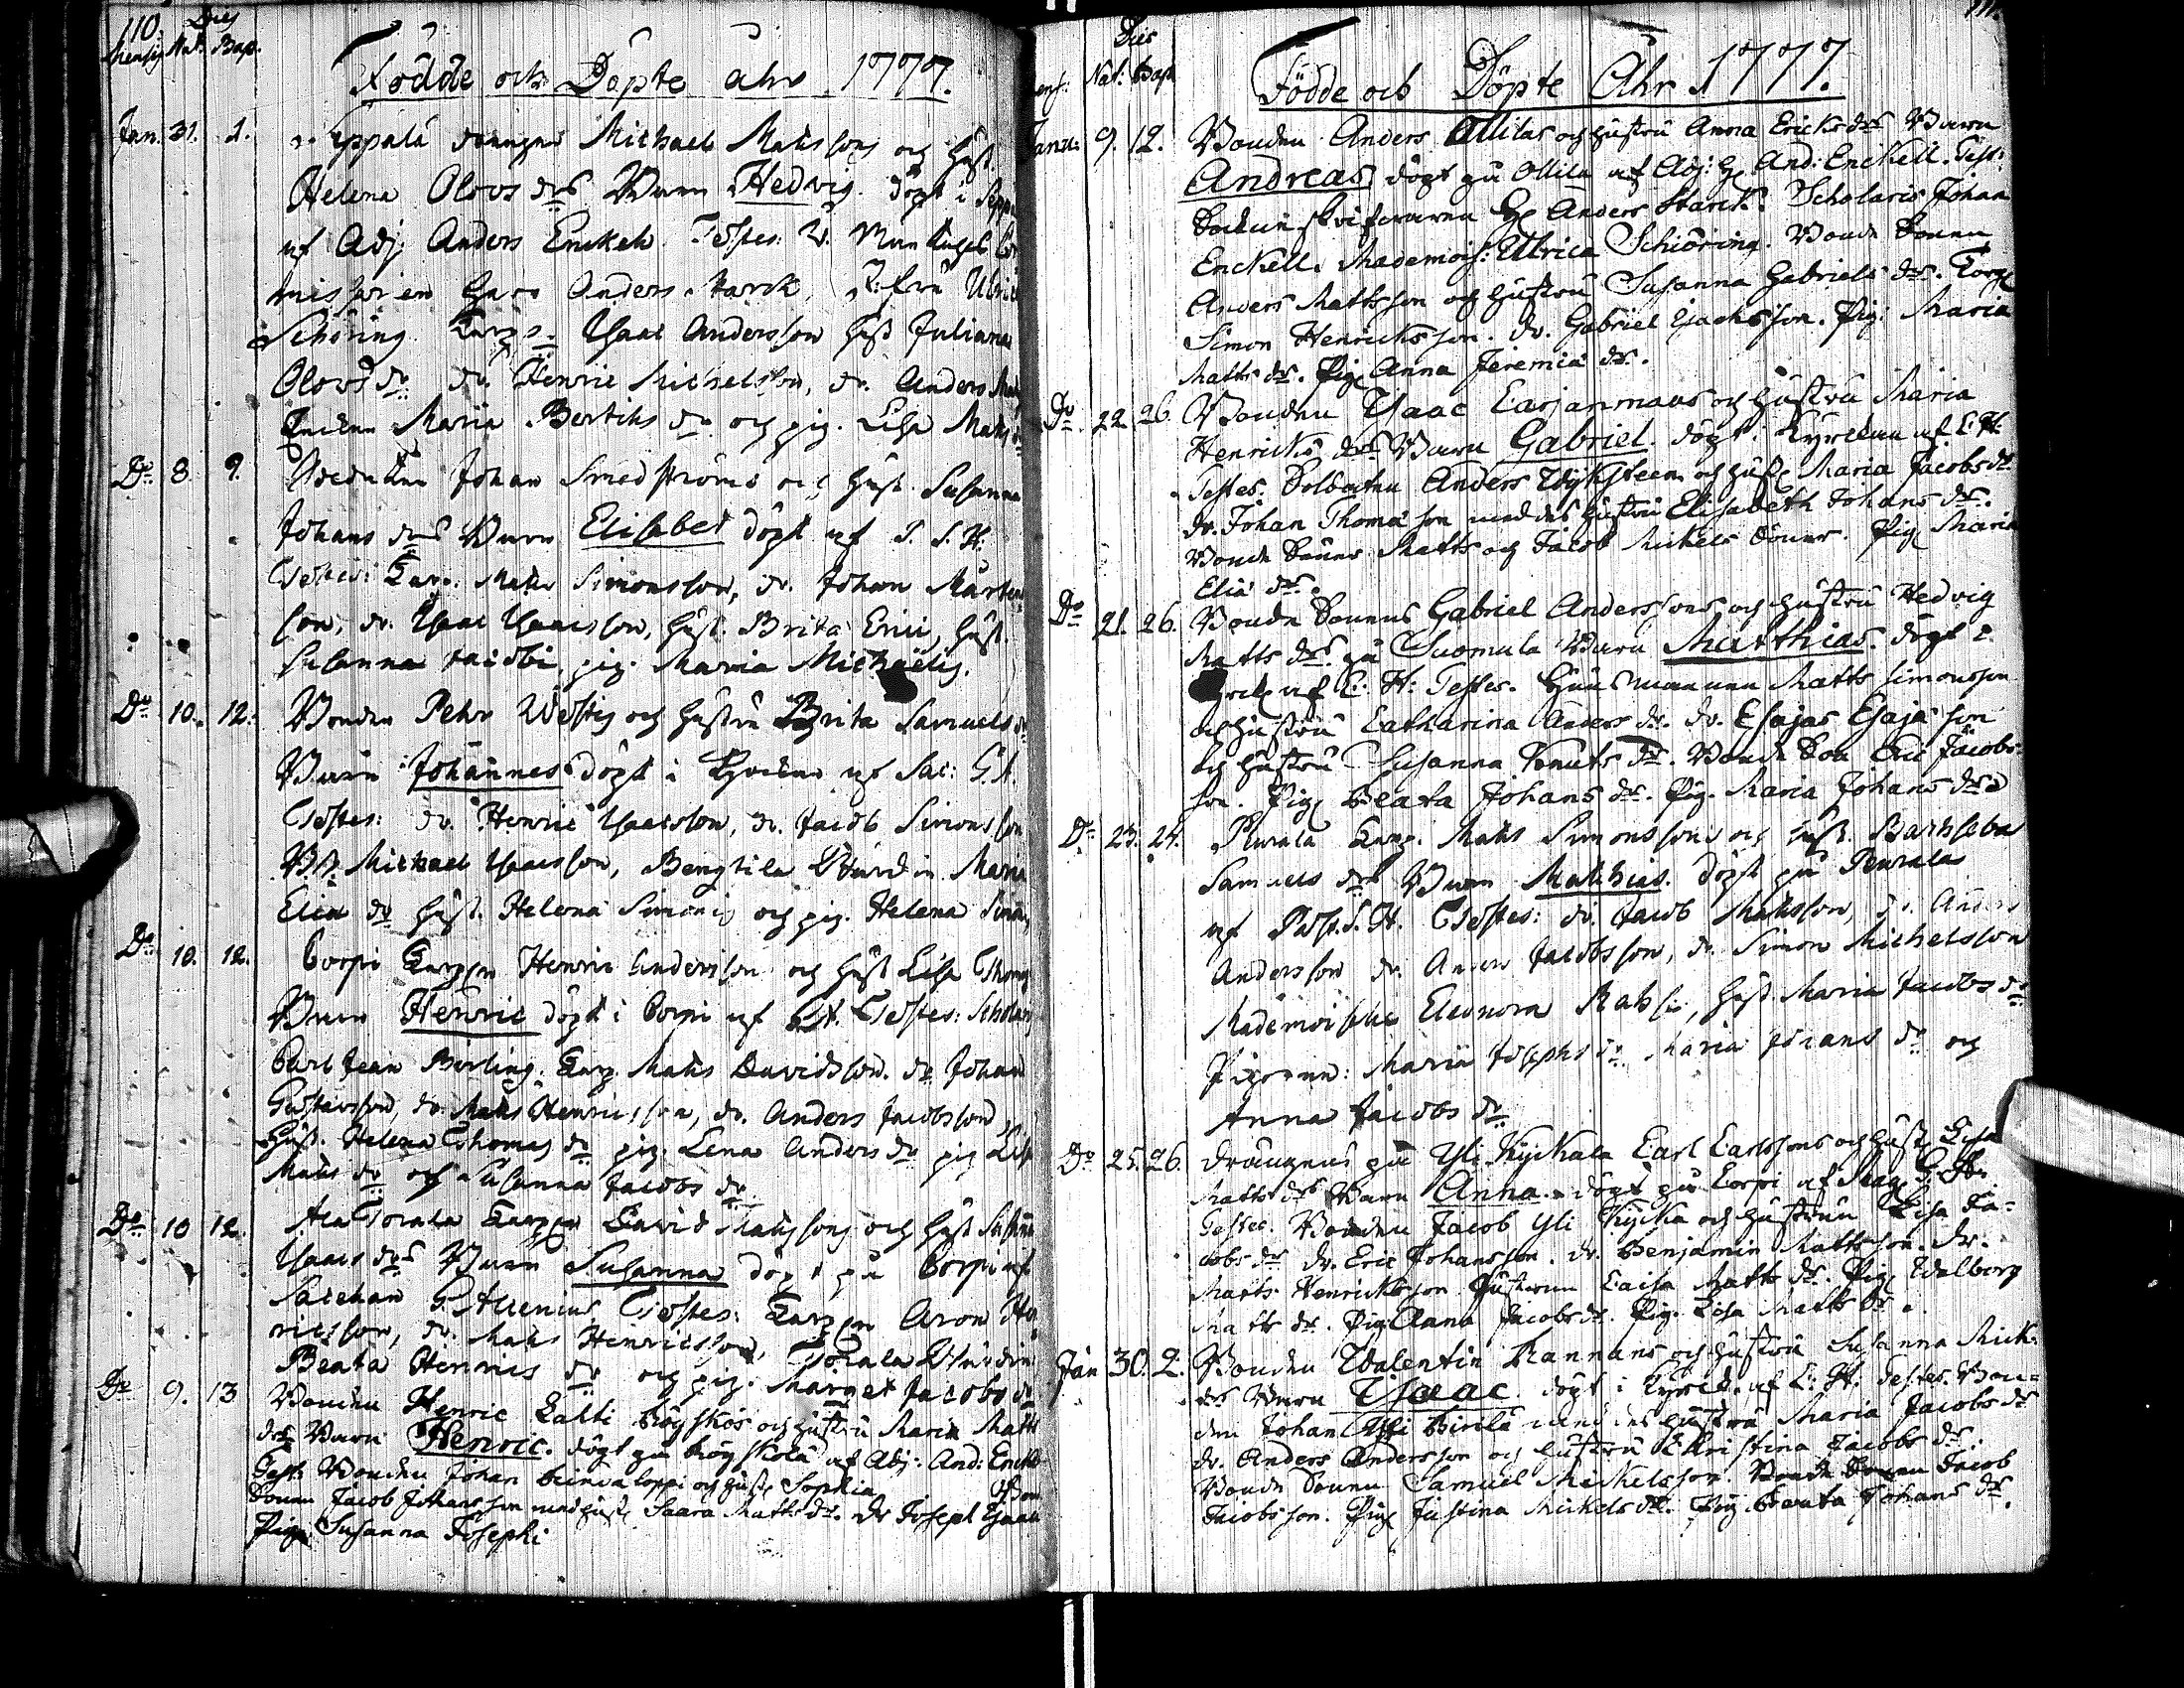 110.
Dies
Mensis Nat. Bap.
Födde och Döpte åhr 1777.
Jan. 31. 1. Eppalä drängens Michael Matssons och hust.
Helena Olovs drs Barn Hedvig döpt i Seppä
af Adj Anders Enckell. Testes: V.
Herr Anders Starck, Ulrica
Schöring Isaac Andersson hust Juliana
Olovs dr dr Henric Michelsson, dr. Anders
Maria Bertils dr och pig. Lisa Mats
Do 8 9. Johan Smedströms och hust Susanna
Johans drs Barn Elisabet döpt af
Testes: Mats Simonsson, dr. Johan Mårten
son, dr. Isaac Isaacsson, hust. Brita Erici, hust.
Susanna Jacobi, pig. Maria Michaëlis.
Do 10. 12. Bonden Pehr Westis och hustru Brita Samuels dr
Barn Johannes döpt i Kyrckan af Sac: G.A.
Testes: dr. Henric Isacsson, dr. Jacob Simonsson
Michael Isacsson, Bengtila Maria
Eliæ dr hust. Helena Simonis och pig. Helena
Do 10. 12. Corpi Henric Andersson och hust Lisa Thom
Barn Henric döpt i Corpi af G.A. Testes: Scholar
Carl Jean Mats Davidsson. dr Johan
Gustavsson, dr. Mats Henricsson, dr. Anders Jacobsson,
hust. Helena Thomas dr pig. Lena Anders dr pig Lisa
Mats dr och Susanna Jacobs dr
Do 10 12. David Matssons och hust Susanna
Isaacs drs Barn Susanna döpt på Corpi af
G. Allenius Testes: Aron Hen
ricsson, dr. Mats Henricsson,
Beata Henrics dr och pig. Margeta Jacobs dr
Do 9. 13 Bonden Henric Lalli och hustru Maria Matts
drs Barn Henric. döpt på af Adj: And: Enckell
Test: Bonden Johan och hust. Sophia
Sonen Jacob Johansson med hust. Saara Matts dr. dr Joseph Isaac
Pig. Susanna Josephi
111.
Dies
Mens: Nat: Bapt
Födde och Döpte Åhr 1777.
Janu: 9. 12. Bonden Anders Ollilas och hustru Anna Ericks drs Barn
Andreas döpt på Ollila af Adj: H. And: Enckell. Test:
Sockenskrifvaren H. Anders Starck. Scholaris Johan
Enckell. Mademois: Ulrica Schiöring. Bonde Sonen
Anders Mattsson och hustru Susanna Gabriels dr.
Simon Henricksson. dr. Gabriel Isacksson. Pig: Maria
Matts dr. Pig. Anna Jeremiä dr.
Do. 22 26. Bonden Isaac Carjanmaas och hustru Maria
Henricks drs Barn Gabriel. döpt i Kyrckan af L: H:
Testes. Soldaten Anders och hust. Maria Jacobs dr
dr. Johan Thomä son med des hustru Elisabeth Johans dr.
Bonde Söner Matts och Jacob Mickels Söner. Pig. Maria
Eliä dr.
Do 21. 26. Bonde Sonens Gabriel Anderssons och hustru Hedvig
Matts drs på Suomula Barn Matthias. döpt i
Kyrck. af L: H: Testes. Husmannen Matts Simonsson
och hustru Catharina Anders dr. dr. Esajas Esajä son
och hustru Susanna Knuts dr. Bonde Son Eric Jacobs
son. Pig. Beata Johans dr. Pig. Maria Johans dr
Do 23. 24. Peurala Mats Simonssons och hust. Barhseba
Samuels drs Barn Mathias. döpt på Peurala
af Past. L. H. Testes: dr. Jacob Matsson, dr. Anders
Andersson dr. Anders Jacobsson, dr. Simon Michelsson
Mademoiselle Eleonora hust Maria Jacobs dr
Pigorna: Maria Josephs dr Maria Johans dr och
Anna Jacobs dr
Do 25. 26. Drängens på Yli Kyckala Carl Carlssons och hust. Lisa
Matts drs Barn Anna. döpt på Corpi af Mag.
Testes. Bonden Jacob Yli Kycka och hustrun Lisa Ja-
cobs dr dr. Eric Johansson. dr. Benjamin Mattsson. dr.
Matts Henricksson hustrun Caisa Matts dr. Pig. Walborg
Matts dr. Pig. Anna Jacobs dr. Pig. Lisa Matts dr.
Jan 30. 2. Bonden Walentin Rannans och hustru Susanna Mick.
drs Barn Isaac. döpt i Kyrck. af L: H: Testes. Bon-
den Johan Yli med des hustru Maria Jacobs dr
dr. Anders Andersson och hustru Christina Jacobs dr.
Bonde Sonen Samuel Mickelsson. Bonde Sonen Jacob
Jacobsson. Pig. Justina Mickels dr. Pig. Beata Johans dr.